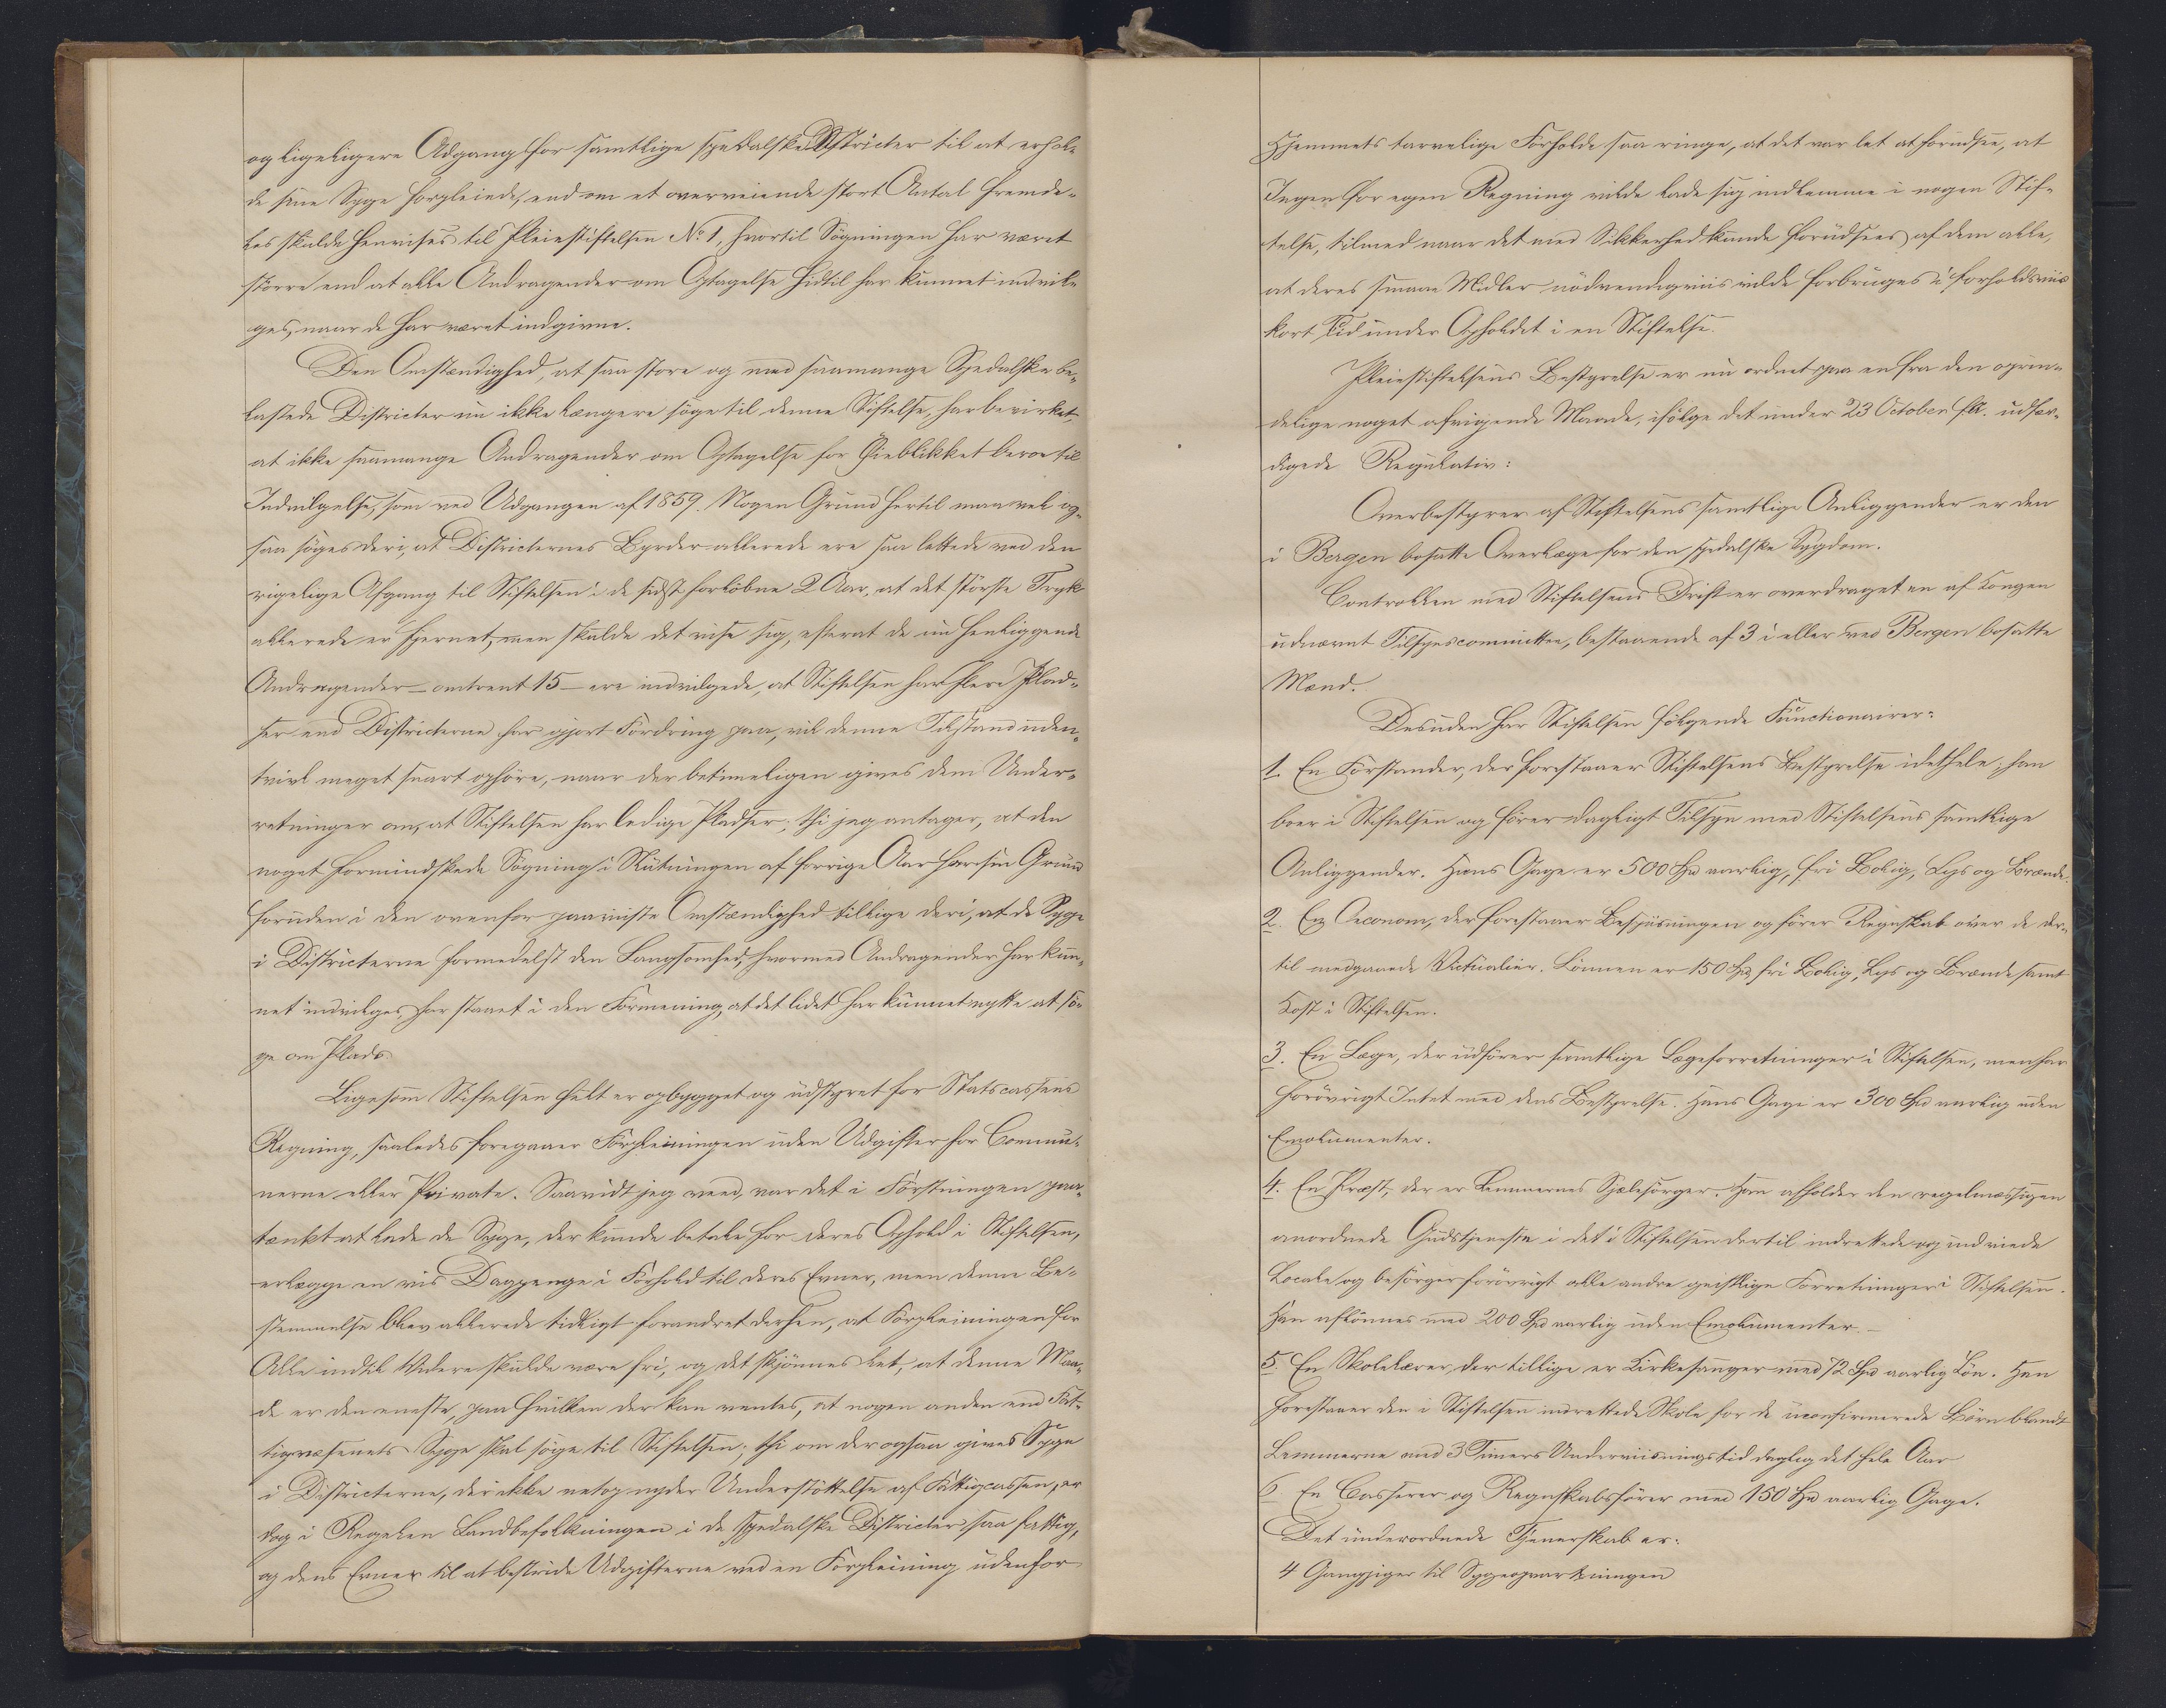 og ligeligere Adgang for samtlige spedalske Districter til at erhol-
de sine Syge forpleiede, end om et overveiende stort Antal fremde-
les skulde henvises til Pleiestiftelsen No 1, hvortil Søgningen har været
større end at alle Andragender om Optagelse hidtil har kunnet indvil-
ges, naar de har været indgivne.
Den Omstændighed, at saa store og med saamange Spedalske be-
lastede Districter nu ikke længere søge til denne Stiftelse, har bevirket,
at ikke saamange Andragender om Optagelse for Øieblikket beroe til
Indvilgelse, som ved Udgangen af 1859. Nogen Grund hertil maa vel og-
saa søges deri, at Districternes Byrder allerede ere saa lettede ved den
rigelige Afgang til Stiftelsen i de sidst forløbne 2 Aar, at det største Tryk
allerede er fjernet, men skulde det vise sig, efterat de nu henliggende
Andragender – omtrent 15 – ere indvilgede, at Stiftelsen har flere Plad-
ser end Districterne har gjort Fordring paa, vil denne Tilstand uden-
tvivl meget snart ophøre, naar der betimeligen gives dem Under-
retninger om, at Stiftelsen har ledige Pladser; thi jeg antager, at den
noget formindskede Søgning i Slutningen af forrige Aar har sin Grund
foruden i den ovenfor paaviste Omstændighed tillige deri, at de Syge
i Districterne formedelst den Langsomhed, hvormed Andragender har kun-
net indvilges, har staaet i den Formening, at det lidet har kunnet nytte at sø-
ge om Plads.
Ligesom Stiftelsen helt er opbygget og udstyret for Statscassens
Regning, saaledes foregaaer Forpleiningen uden Udgifter for Commu-
nerne eller Private. Saavidt jeg veed, var det i Førstningen paa-
tænkt at lade de Syge, der kunde betale for deres Ophold i Stiftelsen,
erlægge en vis Dagpenge i Forhold til deres Evner, men denne Be-
stemmelse blev allerede tidligt forandret derhen, at Forpleiningen for
Alle indtil Videre skulde være fri, og det skjønnes let, at denne Maa-
de er den eneste, paa hvilken der kan ventes, at nogen anden end Fat-
tigvæsenets Syge skal søge til Stiftelsen; thi om der ogsaa gives Syge
i Districterne, der ikke netop nyder Understøttelse af Fattigcassen, er
dog i Regelen Landbefolkningen i de spedalske Districter saa fattig,
og dens Evner til at bestride Udgifterne ved en Forpleining udenfor
Hjemmets tarvelige Forholde saa ringe, at det var let at forudsee, at
Ingen for egen Regning vilde lade sig indlemme i nogen Stif-
telse, tilmed naar det med Sikkerhed kunde forudsees af dem alle,
at deres smaae Midler nødvendigviis vilde forbruges i forholdsviis
kort Tid under Opholdet i en Stiftelse.
Pleiestiftelsens Bestyrelse er nu ordnet paa en fra den oprin-
delige noget afvigende Maade, ifølge det under 23 October f.A. udfær-
digede Regulativ:
Overbestyrer af Stiftelsens samtlige Anliggender er den
i Bergen bosatte Overlæge for den spedalske Sygdom.
Controllen med Stiftelsens Drift er overdraget en af Kongen
udnævnt Tilsynscommittee, bestaaende af 3 i eller ved Bergen bosatte
Mænd.
Desuden har Stiftelsen følgende Functionairer:
1. En Forstander, der forestaaer Stiftelsens Bestyrelse idethele; han
boer i Stiftelsen og fører dagligt Tilsyn med Stiftelsens samtlige
Anliggender. Hans Gage er 500 Spd aarlig, fri Bolig, Lys og Brænde.
2. En Oeconom, der forestaaer Bespiisningen og fører Regnskab over de der-
til medgaaede Victualier. Lønnen er 150 Spd, fri Bolig, Lys og Brænde samt
Kost i Stiftelsen.
3. En Læge, der udfører samtlige Lægeforretninger i Stiftelsen, men har
forøvrigt Intet med dens Bestyrelse. Hans Gage er 300 Spd aarlig uden
Emolumenter.
4. En Præst, der er Lemmernes Sjælesørger. Han afholder den regelmæssigen
anordnede Gudstjeneste i det i Stiftelsen dertil indrettede og indviede
Locale og besørger forøvrigt alle andre geistlige Forretninger i Stiftelsen.
Han aflønnes med 200 Spd aarlig uden Emolumenter. –
5. En Skolelærer, der tillige er Kirkesanger med 72 Spd aarlig Løn. Han
forestaaer den i Stiftelsen indrettede Skole for de uconfirmerede Børn blandt
Lemmerne med 3 Timers Underviisningstid daglig det hele Aar
6 En Casserer og Regnskabsfører med 150 Spd aarlig Gage.
Det underordnede Tjenerskab er:
4 Gangpiger til Sygeopvartningen